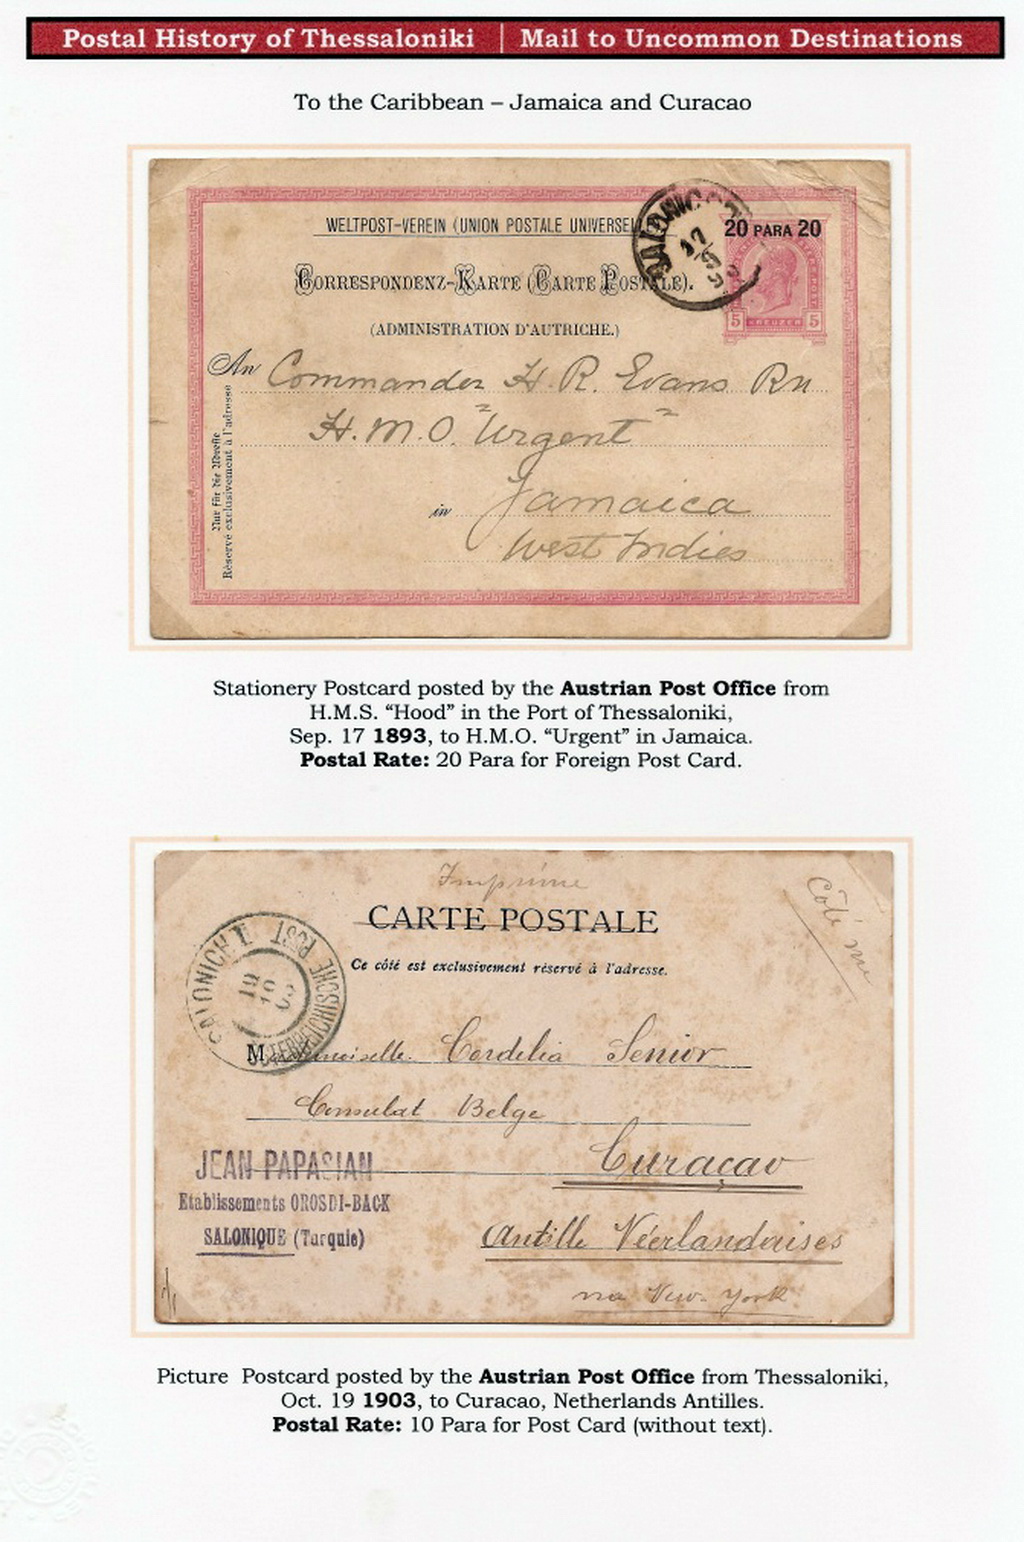 Postal History of Thessaloniki | Mail to Uncommon Destinations
To the Caribbean – Jamaica and Curacao
WELTPOST-VEREIN (UNION POSTALE UNIVERSELLE)
20 PARA 20
SALONICH
17
CORRESPONDENZ-KARTE (CARTE POSTALE).
5 KREUZER 5
(ADMINISTRATION D'AUTRICHE.)
An Commander H. R. Evans RN
H.M.O. "Urgent"
in Jamaica
West Indies
Nur für die Adresse
Réservé exclusivement à l'adresse
Stationery Postcard posted by the Austrian Post Office from
H.M.S. “Hood” in the Port of Thessaloniki,
Sep. 17 1893, to H.M.O. “Urgent” in Jamaica.
Postal Rate: 20 Para for Foreign Post Card.
Imprimé
Côté
CARTE POSTALE
Ce côté est exclusivement réservé à l'adresse.
SALONICH I
ÖSTERREICHISCHE POST
19
10
03
Mademoiselle Cordelia Senior
Consulat Belge
Curaçao
Antille Néerlandaises
via New-York
JEAN PAPASIAN
Etablissements OROSDI-BACK
SALONIQUE (Turquie)
Picture Postcard posted by the Austrian Post Office from Thessaloniki,
Oct. 19 1903, to Curacao, Netherlands Antilles.
Postal Rate: 10 Para for Post Card (without text).